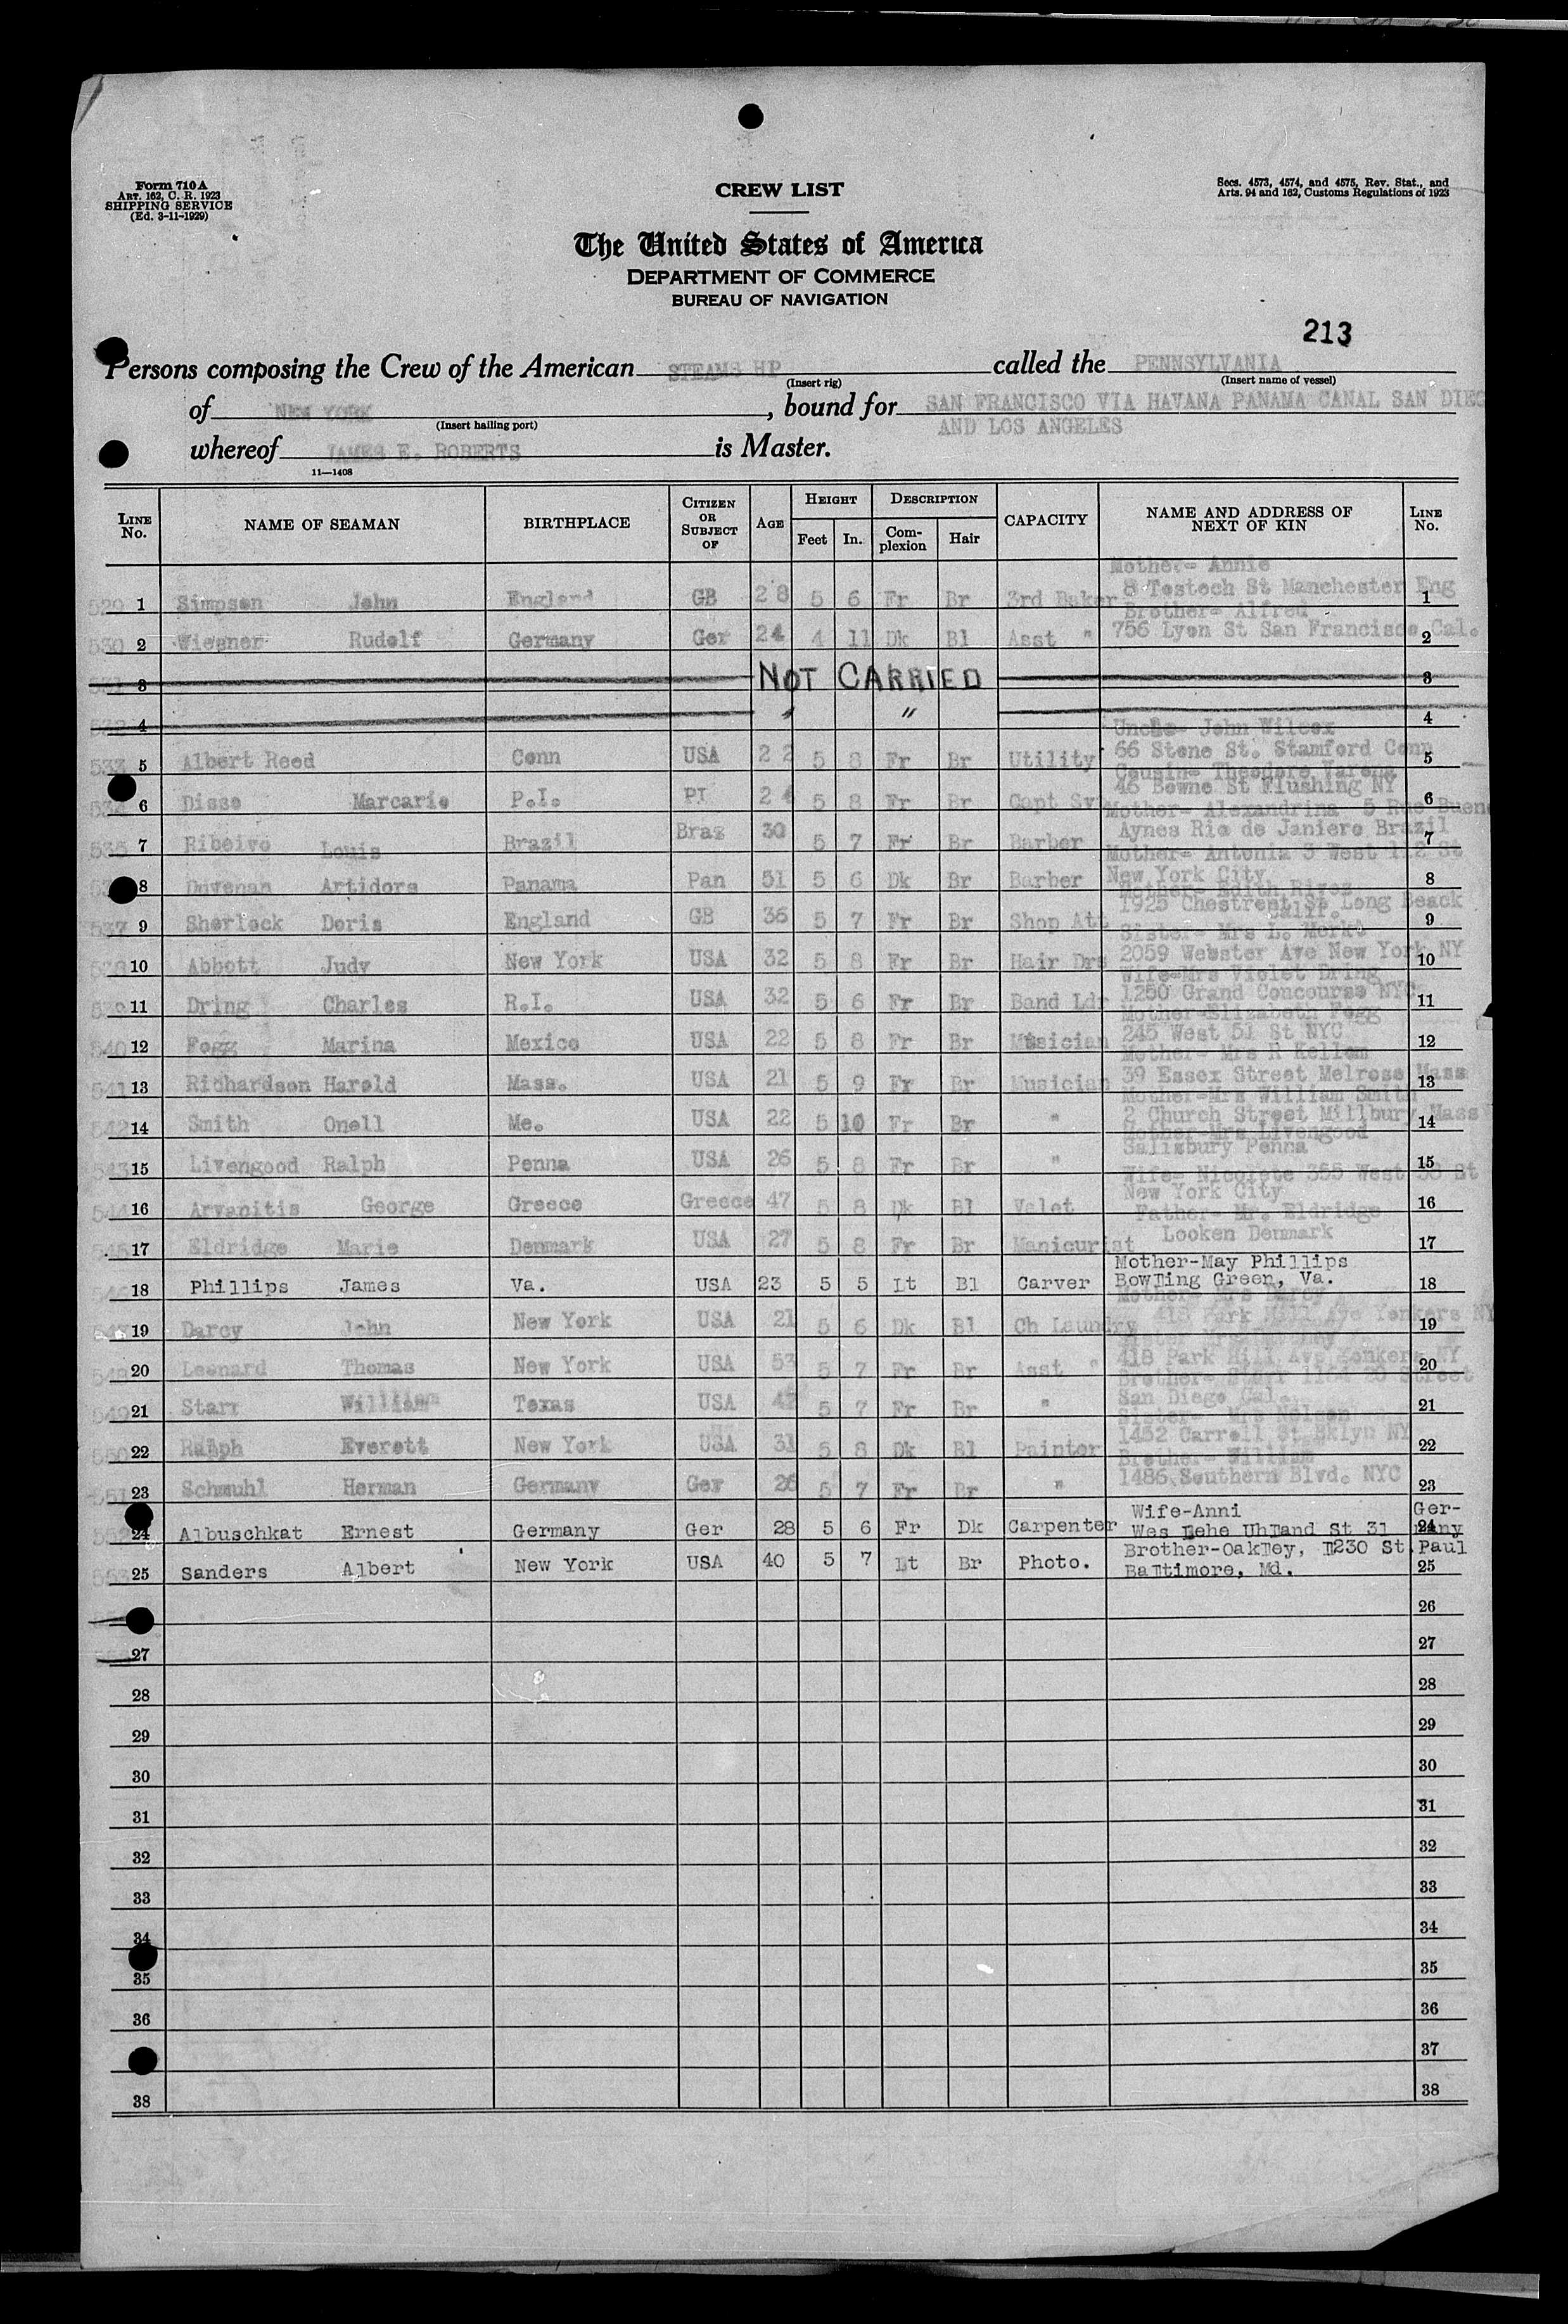 Form 710 A
ART. 162, C. R. 1923
SHIPPING SERVICE
(Ed. 3-11-1929)
CREW LIST
Secs. 4573, 4574, and 4575, Rev. Stat., and
Arts. 94 and 162, Customs Regulations of 1923
The United States of America
DEPARTMENT OF COMMERCE
BUREAU OF NAVIGATION
213
Persons composing the Crew of the American STEAMSHIP called the PENNSYLVANIA
(Insert rig) (Insert name of vessel)
of NEW YORK, bound for SAN FRANCISCO VIA HAVANA PANAMA CANAL SAN DIEG
(Insert hailing port) AND LOS ANGELES
whereof JAMES E. ROBERTS is Master.
11—1408
LINE No. NAME OF SEAMAN BIRTHPLACE CITIZEN OR SUBJECT OF AGE HEIGHT Feet In. DESCRIPTION Complexion Hair CAPACITY NAME AND ADDRESS OF NEXT OF KIN LINE No.
Mother- Annie
529 1 Simpson John England GB 28 5 6 Fr Br 3rd Baker 8 Testech St Manchester Eng 1
Brother- Alfred
530 2 Wiegner Rudolf Germany Ger 24 4 11 Dk Bl Asst " 756 Lyon St San Francisco Cal. 2
531 3 NOT CARRIED 3
532 4 " " 4
Uncle- John Wilcox
533 5 Albert Reed Conn USA 22 5 8 Fr Br Utility 66 Stone St. Stamford Conn 5
Cousin- Theodore
6 Disso Marcario P.I. PI 24 5 8 Fr Br Capt Sv 46 Bowne St Flushing NY 6
Mother- Alexandrina 5 Rue Buen
535 7 Ribeivo Louis Brazil Braz 30 5 7 Fr Br Barber Aynes Rio de Janiero Brazil 7
Mother- Antonia 3 West 112 St
8 Duvenan Artidora Panama Pan 51 5 6 Dk Br Barber New York City 8
Mother- Edith Rivez
537 9 Sherlock Doris England GB 36 5 7 Fr Br Shop Att 1925 Chestrent St Long Beack Calif. 9
Sister- Mrs L. Merkt
538 10 Abbott Judy New York USA 32 5 8 Fr Br Hair Drs 2059 Webster Ave New York NY 10
Wife-Mrs Violet Dring
539 11 Dring Charles R.I. USA 32 5 6 Fr Br Band Ldr 1250 Grand Concourse NYC 11
Mother-Elizabeth Fogg
540 12 Fogg Marina Mexico USA 22 5 8 Fr Br Musician 245 West 51 St NYC 12
Mother- Mrs R Kellom
541 13 Richardson Harold Mass. USA 21 5 9 Fr Br Musician 39 Essex Street Melrose Mass 13
Mother-Mrs William Smith
542 14 Smith Onell Me. USA 22 5 10 Fr Br " 2 Church Street Millbury Mass 14
Mother-Mrs Livengood
543 15 Livengood Ralph Penna USA 26 5 8 Fr Br " Salisbury Penna 15
Wife- Nicolete 355 West 38 St
544 16 Arvanitis George Greece Greece 47 5 8 Dk Bl Valet New York City 16
Father- Mr. Eldridge
545 17 Eldridge Marie Denmark USA 27 5 8 Fr Br Manicurist Looken Denmark 17
Mother-May Phillips
18 Phillips James Va. USA 23 5 5 Lt Bl Carver Bowling Green, Va. 18
Mother- Mrs Darcy
547 19 Darcy John New York USA 21 5 6 Dk Bl Ch Laundry 418 Park Hill Ave Yonkers NY 19
Sister Mrs
548 20 Leonard Thomas New York USA 53 5 7 Fr Br Asst " 418 Park Hill Ave Yonkers NY 20
Brother- Starr 1184 20 Street
549 21 Starr William Texas USA 42 5 7 Fr Br " San Diego Cal. 21
Sister- Mrs Nelson
550 22 Ralph Everett New York USA 31 5 8 Dk Bl Painter 1432 Carroll St Bklyn NY 22
Brother- William
551 23 Schmuhl Herman Germany Ger 26 5 7 Fr Br " 1486 Southern Blvd. NYC 23
Wife-Anni Ger-
552 24 Albuschkat Ernest Germany Ger 28 5 6 Fr Dk Carpenter Wes Lehe Uhland St 31 many 24
Brother-Oakley, 1230 St Paul
553 25 Sanders Albert New York USA 40 5 7 Lt Br Photo. Baltimore, Md. 25
26
27 27
28 28
29 29
30 30
31 31
32 32
33 33
34 34
35 35
36 36
37
38 38